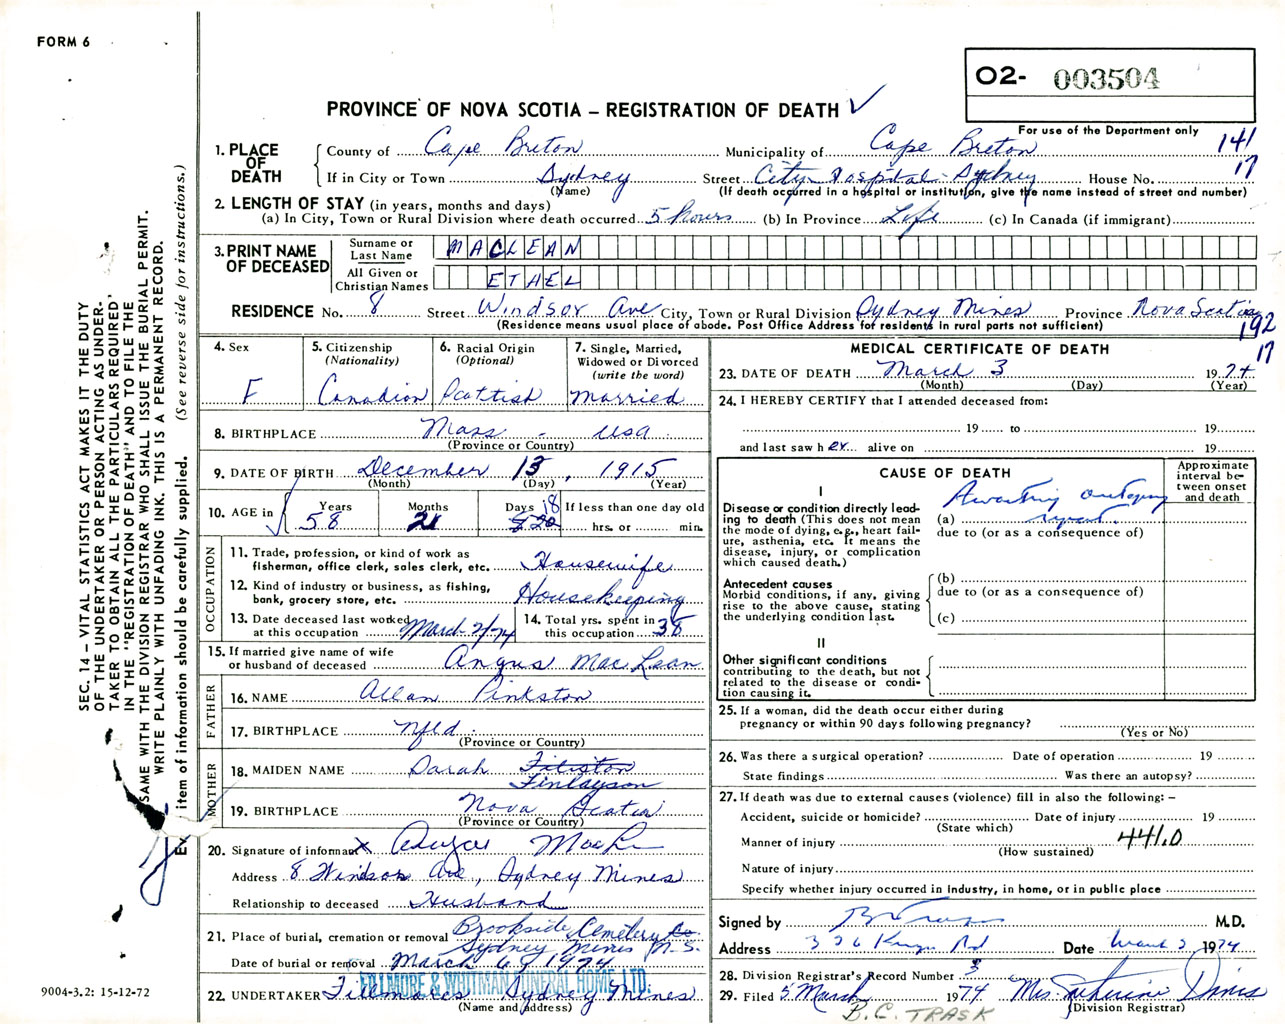 FORM 6
O2- 003504
PROVINCE OF NOVA SCOTIA – REGISTRATION OF DEATH ✓
For use of the Department only
141
17
1. PLACE OF DEATH
County of Cape Breton Municipality of Cape Breton
If in City or Town Sydney Street City Hospital - Sydney House No.
(Name) (If death occurred in a hospital or institution, give the name instead of street and number)
2. LENGTH OF STAY (in years, months and days)
(a) In City, Town or Rural Division where death occurred 5 hours (b) In Province Life (c) In Canada (if immigrant)
3. PRINT NAME OF DECEASED
Surname or Last Name MACLEAN
All Given or Christian Names ETHEL
RESIDENCE No. 8 Street Windsor Ave City, Town or Rural Division Sydney Mines Province Nova Scotia
(Residence means usual place of abode. Post Office Address for residents in rural parts not sufficient)
192
17
4. Sex F
5. Citizenship (Nationality) Canadian
6. Racial Origin (Optional) Scottish
7. Single, Married, Widowed or Divorced (write the word) Married
8. BIRTHPLACE Mass - USA
(Province or Country)
9. DATE OF BIRTH December 13, 1915
(Month) (Day) (Year)
10. AGE in Years 58 Months 2 Days 18 If less than one day old
hrs. or min.
OCCUPATION
11. Trade, profession, or kind of work as fisherman, office clerk, sales clerk, etc. Housewife
12. Kind of industry or business, as fishing, bank, grocery store, etc. Housekeeping
13. Date deceased last worked at this occupation March 2/74
14. Total yrs. spent in this occupation 38
15. If married give name of wife or husband of deceased Angus MacLean
FATHER
16. NAME Allan Pinkston
17. BIRTHPLACE Nfld.
(Province or Country)
MOTHER
18. MAIDEN NAME Sarah
Finlayson
19. BIRTHPLACE Nova Scotia
(Province or Country)
20. Signature of informant X Angus
Address 8 Windsor Ave., Sydney Mines
Relationship to deceased Husband
21. Place of burial, cremation or removal Brookside Cemetery
Sydney Mines N.S.
Date of burial or removal March 6, 1974
FILLMORE & WHITMAN FUNERAL HOME LTD.
22. UNDERTAKER Fillmores Sydney Mines
(Name and address)
MEDICAL CERTIFICATE OF DEATH
23. DATE OF DEATH March 3 1974
(Month) (Day) (Year)
24. I HEREBY CERTIFY that I attended deceased from:
19 to 19
and last saw h er alive on 19
CAUSE OF DEATH
Approximate interval between onset and death
I
Disease or condition directly leading to death (This does not mean the mode of dying, e.g., heart failure, asthenia, etc. It means the disease, injury, or complication which caused death.)
Awaiting autopsy
(a) report
due to (or as a consequence of)
Antecedent causes
Morbid conditions, if any, giving rise to the above cause, stating the underlying condition last.
(b)
due to (or as a consequence of)
(c)
II
Other significant conditions contributing to the death, but not related to the disease or condition causing it.
25. If a woman, did the death occur either during pregnancy or within 90 days following pregnancy?
(Yes or No)
26. Was there a surgical operation? Date of operation 19
State findings Was there an autopsy?
27. If death was due to external causes (violence) fill in also the following: –
Accident, suicide or homicide? Date of injury 19
(State which)
Manner of injury 441.0
(How sustained)
Nature of injury
Specify whether injury occurred in industry, in home, or in public place
Signed by M.D.
Address 326 Kings Rd Date March 1974
28. Division Registrar's Record Number 3
29. Filed 5 March 1974 Mrs. Katherine
(Division Registrar)
B.C. TRASK
SEC. 14 – VITAL STATISTICS ACT MAKES IT THE DUTY
OF THE UNDERTAKER OR PERSON ACTING AS UNDER-
TAKER TO OBTAIN ALL THE PARTICULARS REQUIRED
IN THE "REGISTRATION OF DEATH" AND TO FILE THE
SAME WITH THE DIVISION REGISTRAR WHO SHALL ISSUE THE BURIAL PERMIT.
WRITE PLAINLY WITH UNFADING INK. THIS IS A PERMANENT RECORD.
item of information should be carefully supplied. (See reverse side for instructions.)
9004-3.2: 15-12-72